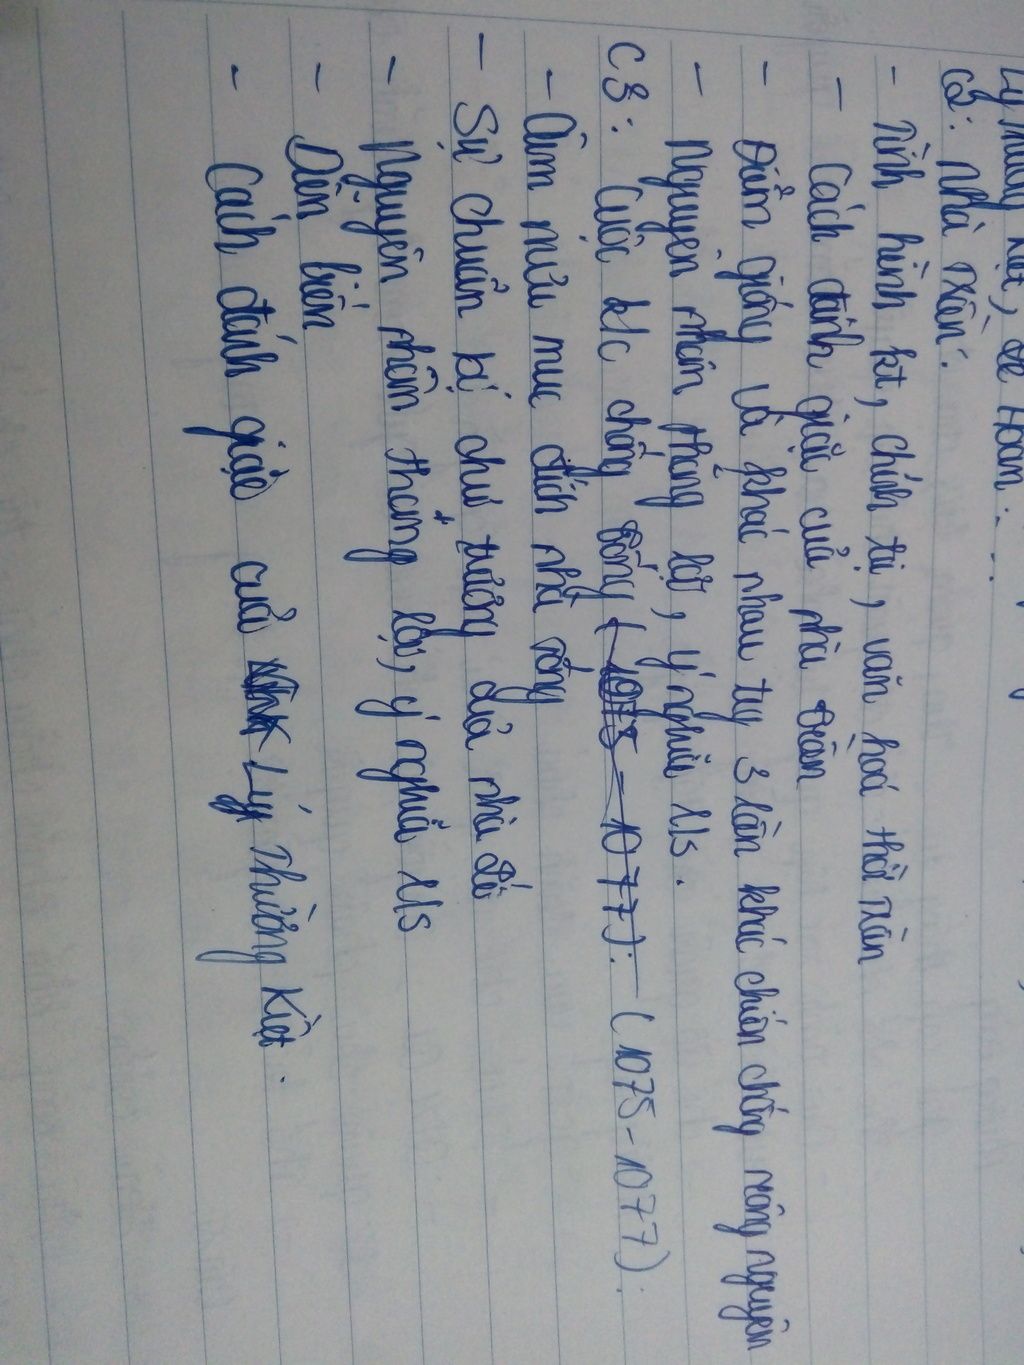 Lý Thường Kiệt, Lê Hoàn:
C2: Nhà Trần:
- Tình hình kt, chính trị, văn hoá thời Trần
- Cách đánh giặc của nhà Trần
- Điểm giống và khác nhau tug 3 lần khác chiến chống mông nguyên
- Nguyên nhân thắng lợi, ý nghĩa l/s.
C3: Cuộc k/c chống Tống (1075 - 1077): (1075-1077):
- Âm mưu mục đích nhà tống
- Sự chuẩn bị chủ trương của nhà Lý
- Nguyên nhân thắng lợi, ý nghĩa l/s
- Diễn biến
- Cách đánh giặc của Lý Thường Kiệt.